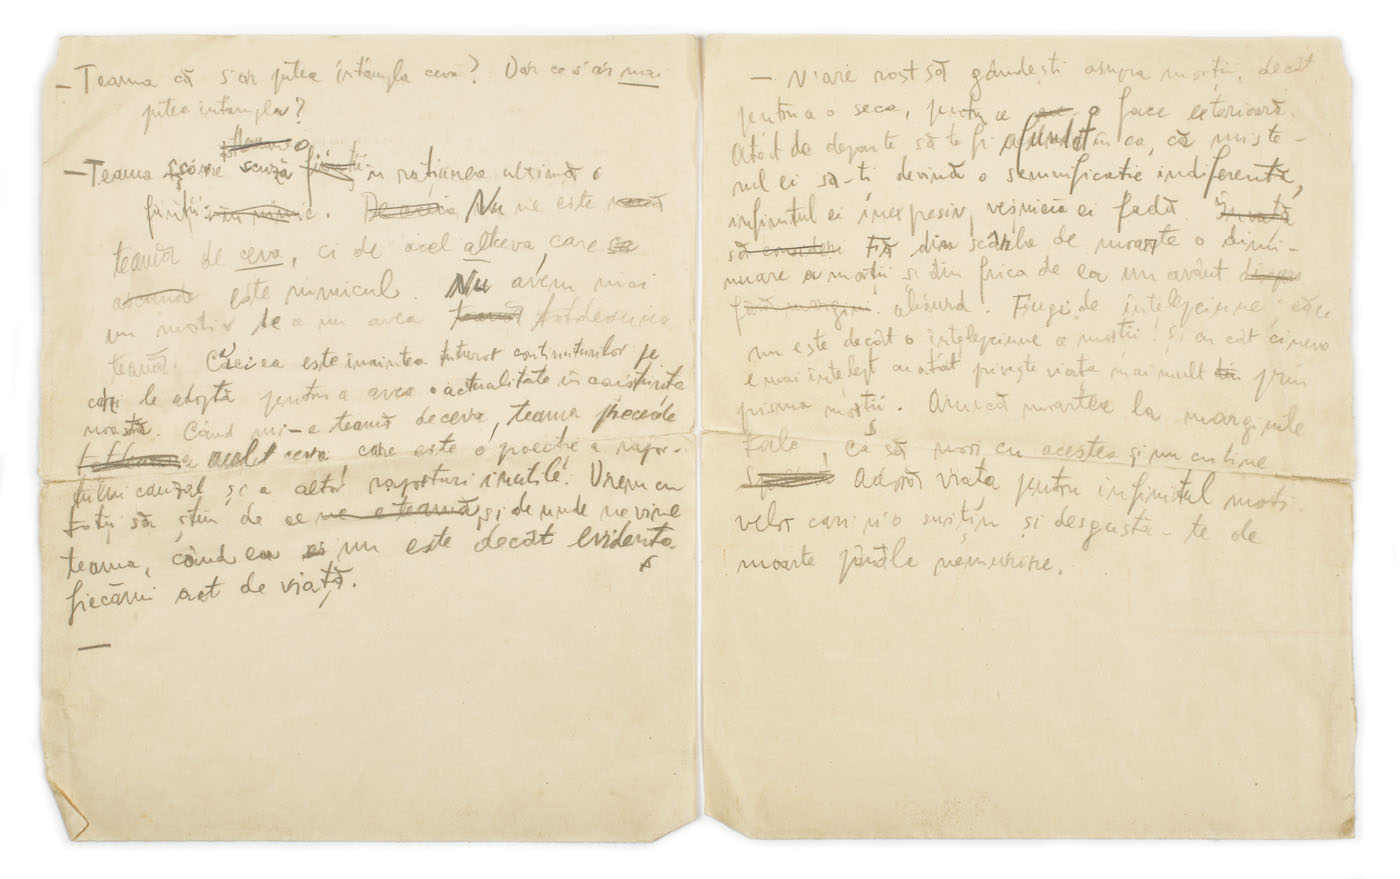 – Teama că s'ar putea întâmpla ceva? Dar ce s'ar mai
putea întâmpla?
– Teama scuză în rațiunea ultimă o
ființii. Nu ne este
teamă de ceva, ci de acel altceva, care
este nimicul. Nu avem nici
un motiv de a nu avea totdeauna
teamă. Căci ea este înaintea tuturor conținuturilor pe
cari le adoptă pentru a avea o actualitate în conștiința
noastră. Când mi-e teamă de ceva, teama precede
acelei ceva, care este o poecție a rapor-
tului cauzal și a altor raporturi inutile. Vrem cu
toții să știm de ce și de unde ne vine
teama, când ea nu este decât evidența
fiecărui act de viață.
—
– N'are rost să gândești asupra morții, decât
pentru a o seca, pentru a o face exterioară.
Atât de departe să te fi afundat în ea, că miste-
rul ei să-ți devină o semnificație indiferentă,
infinitul ei inexpresiv, vejnicia ei fadă.
Fă din scârba de moarte o dimi-
nuare a morții și din frica de ea un avânt
absurd. Fugi de înțelepciune; căci
nu este decât o înțelepciune a morții. Și cu cât cineva
e mai înțelept cu atât privește viața mai mult prin
prisma morții. Aruncă moartea la marginile
tale, ca să mori cu acestea și nu cu tine.
Adoră viața pentru infinitul moti-
velor cari n'o susțin și desgustă-te de
moarte până la nemurire.